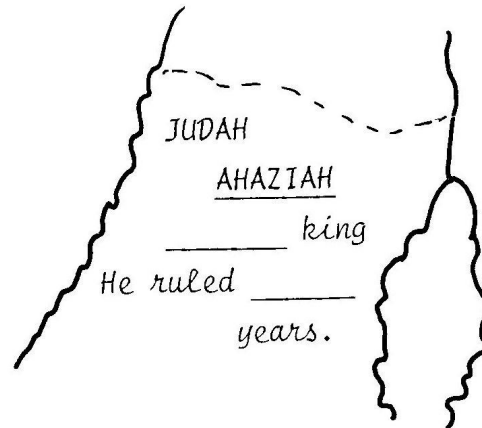 JUDAH
AHAZIAH
________ king
He ruled _______
years.